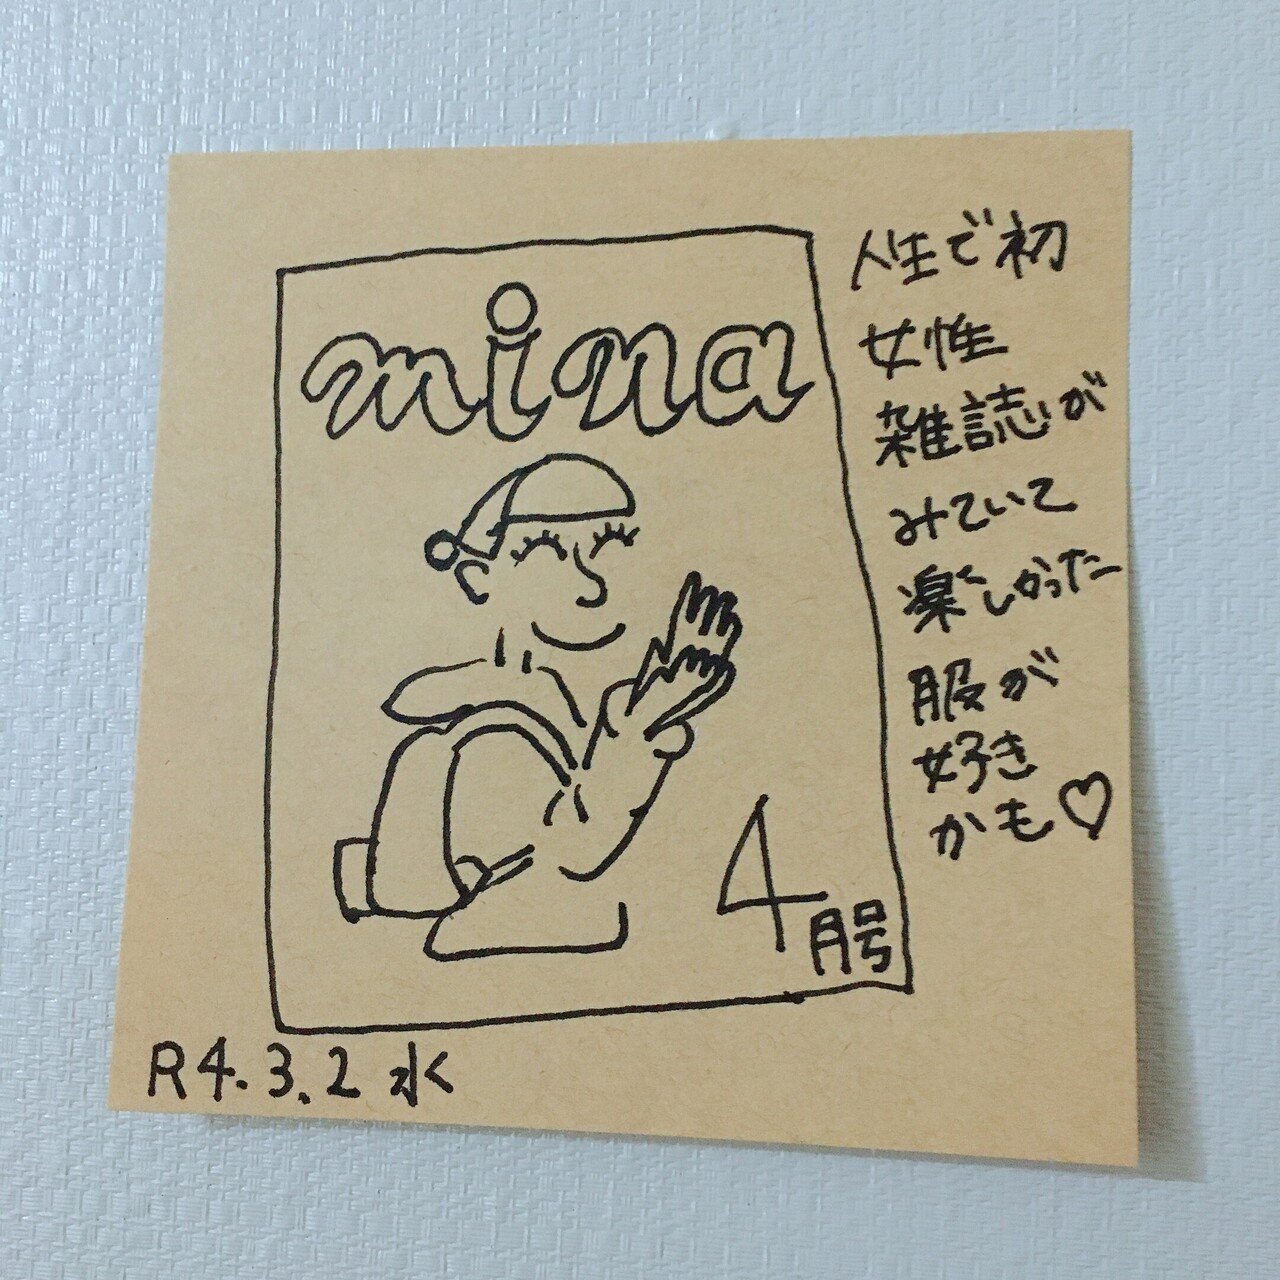 mina
4月号
人生で初
女性
雑誌が
みていて
楽しかった
服が
好き
かも♡
R4.3.2 水